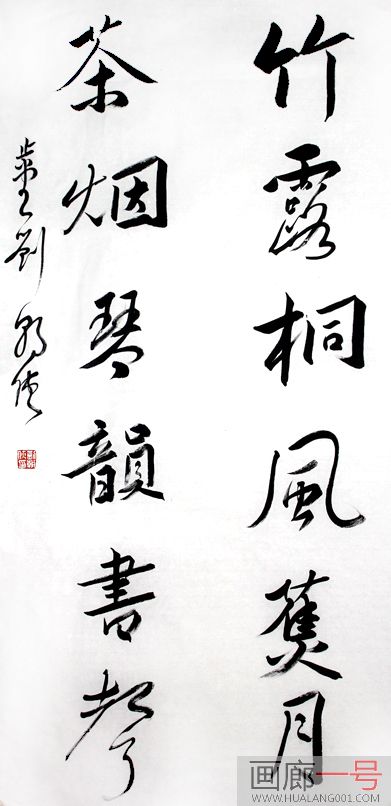 竹露桐風蕉月
茶烟琴韻書聲
劉
画廊一号
WWW.HUALANG001.COM